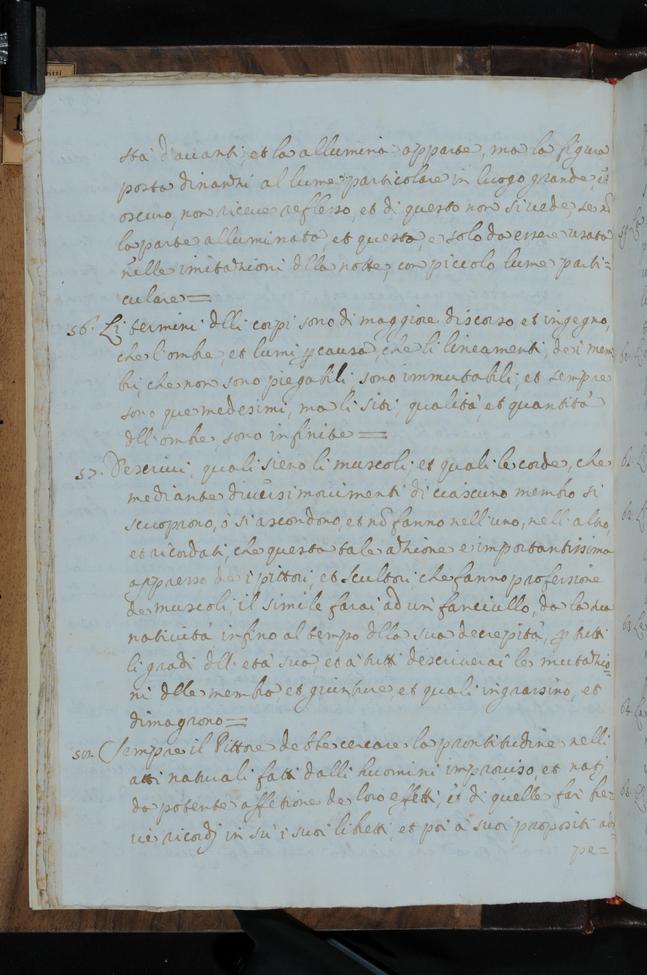 sta d'avanti, et la allumina apparte, ma la figura
posta dinanzi al lume particolare in luogo grande, et
oscuro, non riceve reflesso, et di questo non si vede, se nõ
la parte alluminata, et questa e solo da essere usata
nelle imitazioni della notte, con piccolo lume parti=
culare=
56. Li termini delli corpi sono di maggiore discorso et ingegno,
che l'ombre, et lumi p causa, che li lineamenti, de i mem
bri, che non sono piegabili, sono immutabili, et sempre
sono que medesimi, ma li siti, qualità, et quantità
dell ombre, sono infinite=
57. Descrivi, quali sieno li muscoli, et quali le corde, che
mediante diversi movimenti di ciascuno membro si
scuoprono, ò si ascondono, et nõ fanno nell'uno, nell'altro,
et ricordati, che questa tale azione e importantissima
appresso de i pittori, et scultori, che fanno professione
de muscoli, il simile farai ad un fanciullo, da la sua
natività infino al tempo della sua decrepità, p tutti
li gradi dell' età sua, et à tutti descriverai le mutazio=
ni delle membra et giunture et quali ingrassino, et
dimagrono=
58. Sempre il Pittore debbe cercare la prontitudine nelli
atti naturali fatti dalli huomini improviso, et nati
da potente affetione de loro effetti, et di quelle far bre
vi ricordi in sù i suoi libretti, et poi à suoi propositi
pe=